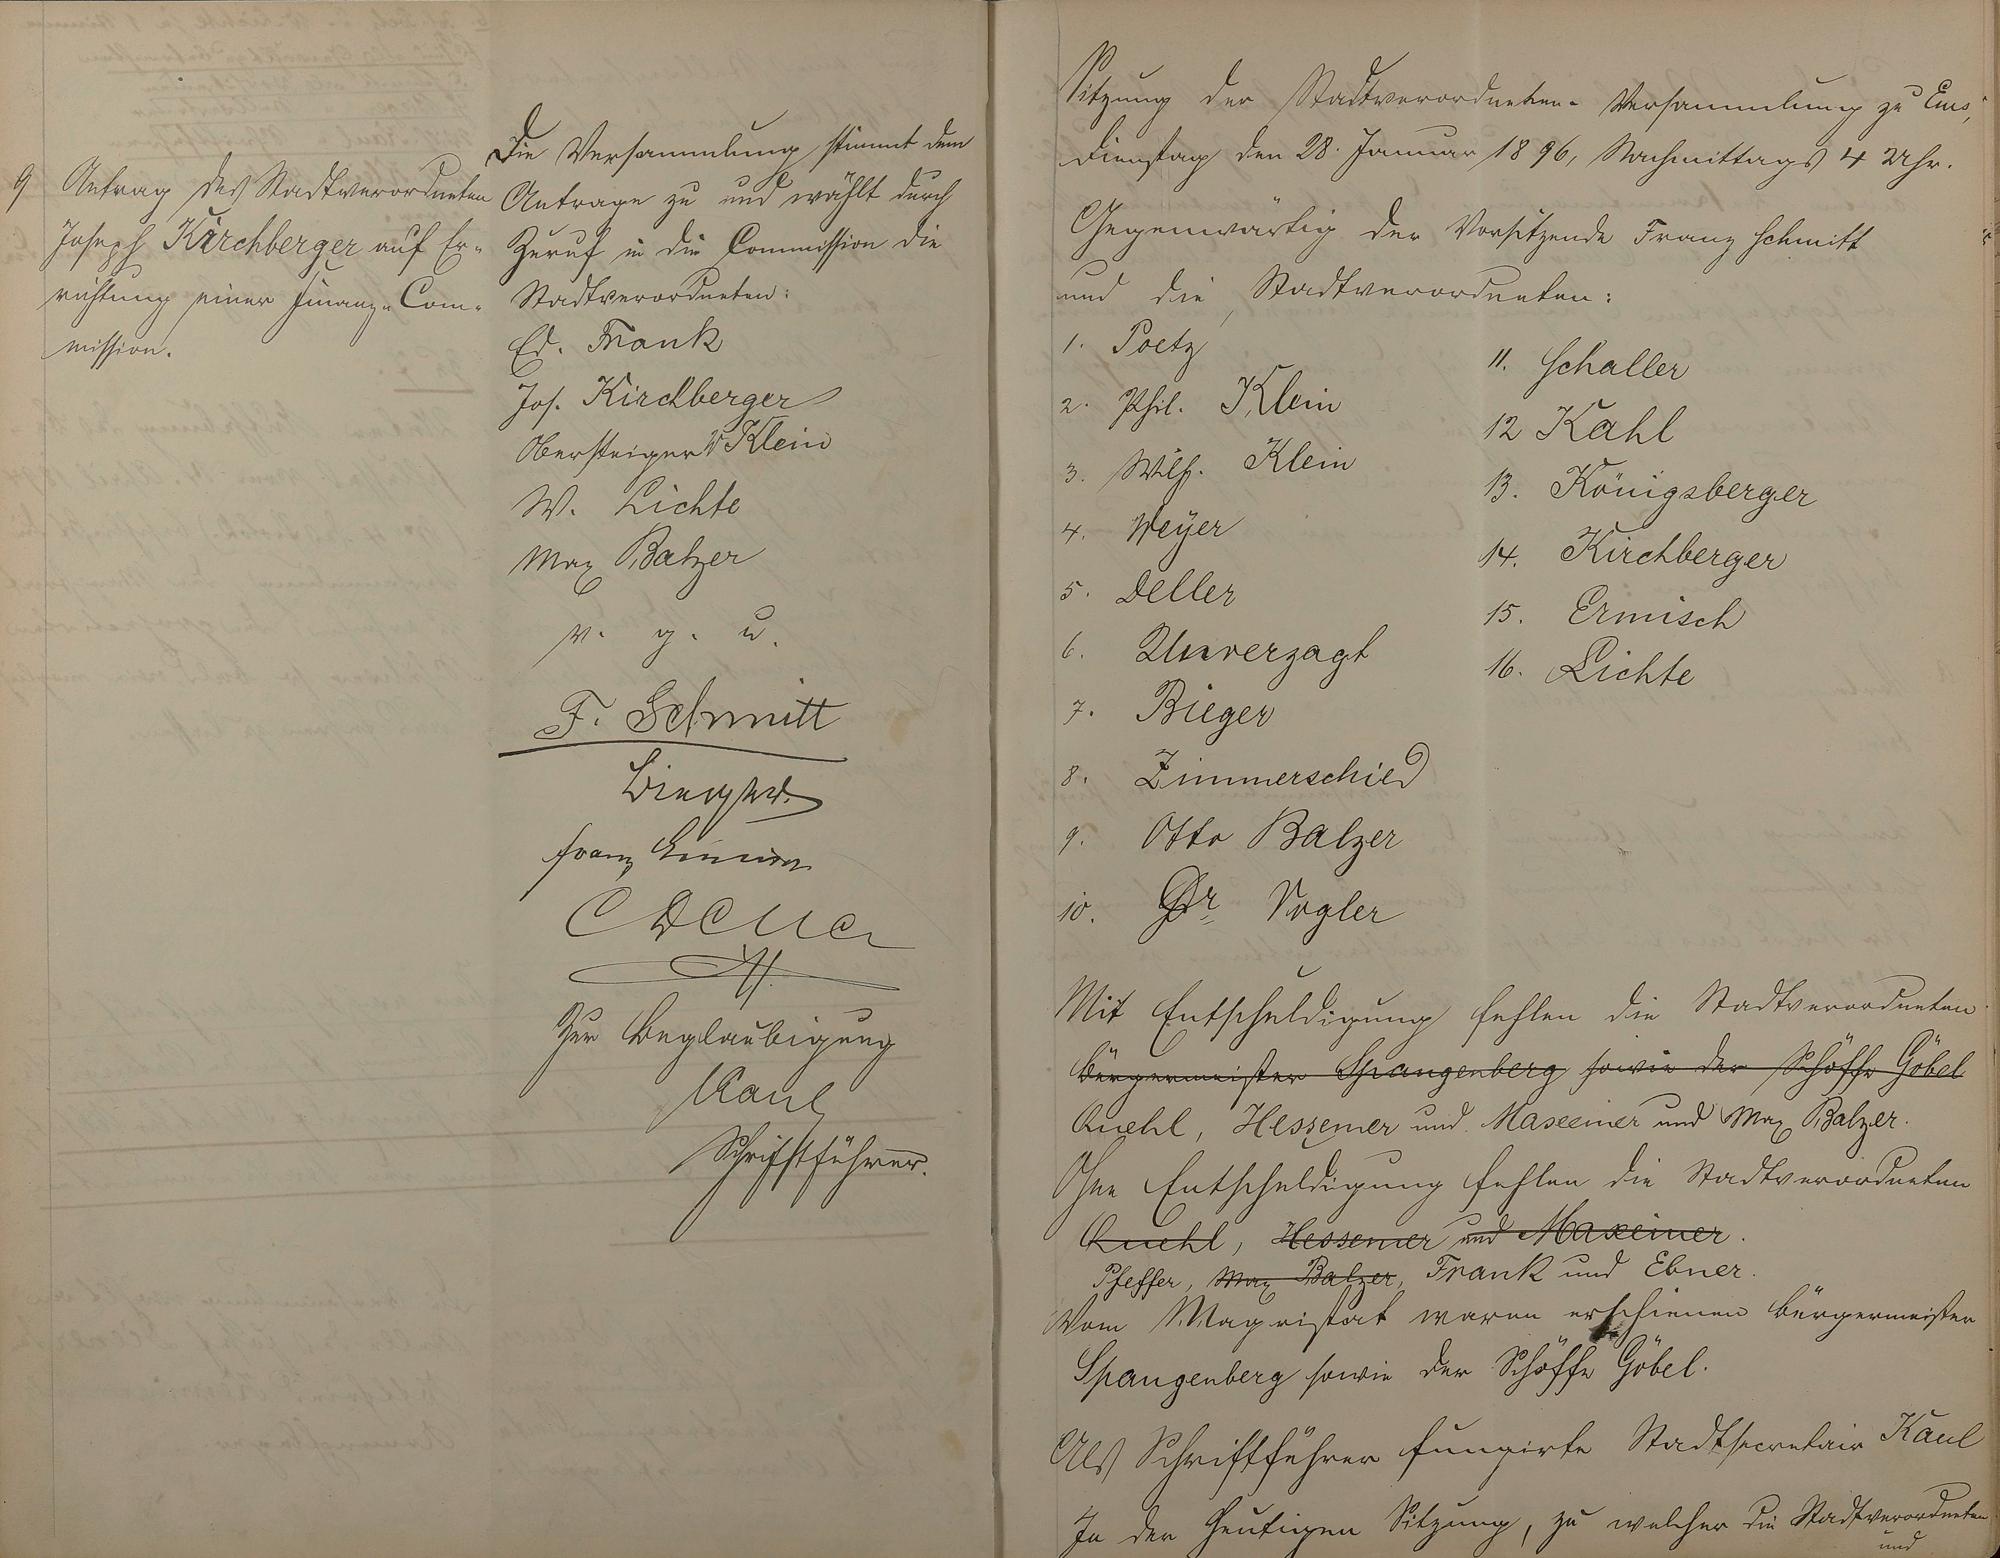 9 Antrag des Stadtverordneten
Joseph Kirchberger auf Er-
richtung einer Finanz-Com-
mission.
Die Versammlung stimmt dem
Antrage zu und wählt durch
Zuruf in die Commission die
Stadtverordneten:
Ed. Frank
Jos. Kirchberger
Obersteiger W Klein
W. Lichte
Max Balzer
v. g. u.
F. Schmitt
Franz
C Deller
Zur Beglaubigung
Kaul
Schriftführer.
Sitzung der Stadtverordneten-Versammlung zu Ems,
Dienstag den 28. Januar 1896, Nachmittags 4 Uhr.
Gegenwärtig der Vorsitzende Franz Schmitt
und die Stadtverordneten:
1. Poetz
2. Phil. Klein
3. Wilh. Klein
4. Weyer
5. Deller
6. Unverzagt
7. Bieger
8. Zimmerschied
9. Otto Balzer
10. Dr Vogler
11. Schaller
12 Kahl
13. Königsberger
14. Kirchberger
15. Ermisch
16. Lichte
Mit Entschuldigung fehlen die Stadtverordneten
Bürgermeister Spangenberg sowie der Schöffe Göbel
Kuehl, Hessemer und Maxeiner und Max Balzer.
Ohne Entschuldigung fehlen die Stadtverordneten
Kuehl, Hessemer und Maxeiner.
Pfeffer, Max Balzer, Frank und Ebner.
Vom Magistrat waren erschienen Bürgermeister
Spangenberg sowie der Schöffe Göbel.
Als Schriftführer fungirte Stadtsecretair Kaul
In der heutigen Sitzung, zu welcher die Stadtverordneten
und